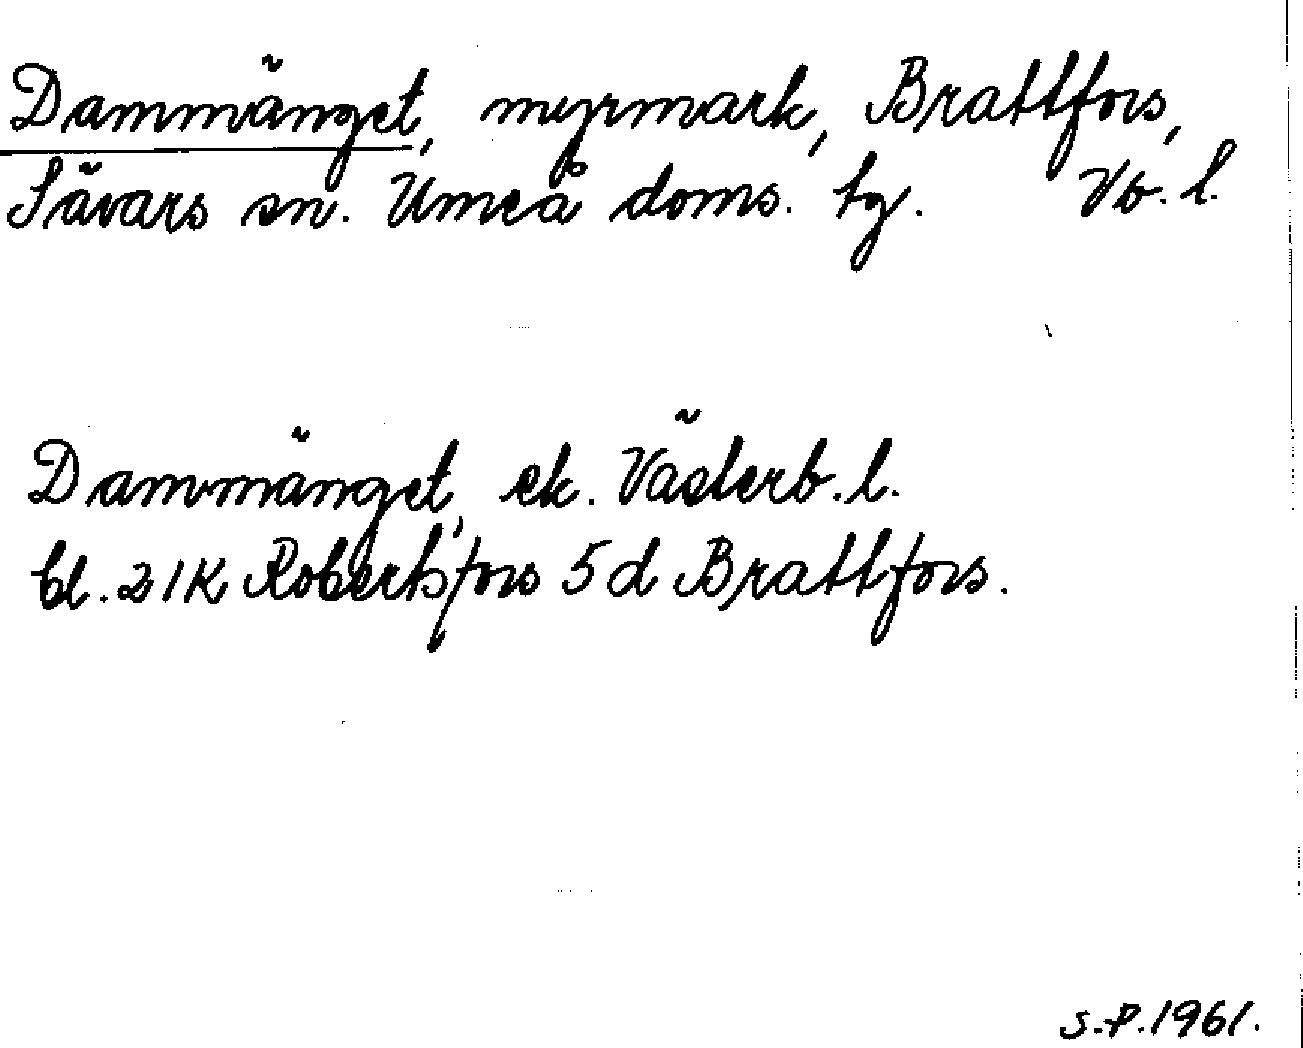 Dammänget, myrmark, Brattfors,
Sävars sn. Umeå doms. tg. Vb. l.
Dammänget, ek. Västerb. l.
bl. 21K Robertsfors 5d Brattfors.
S.P. 1961.